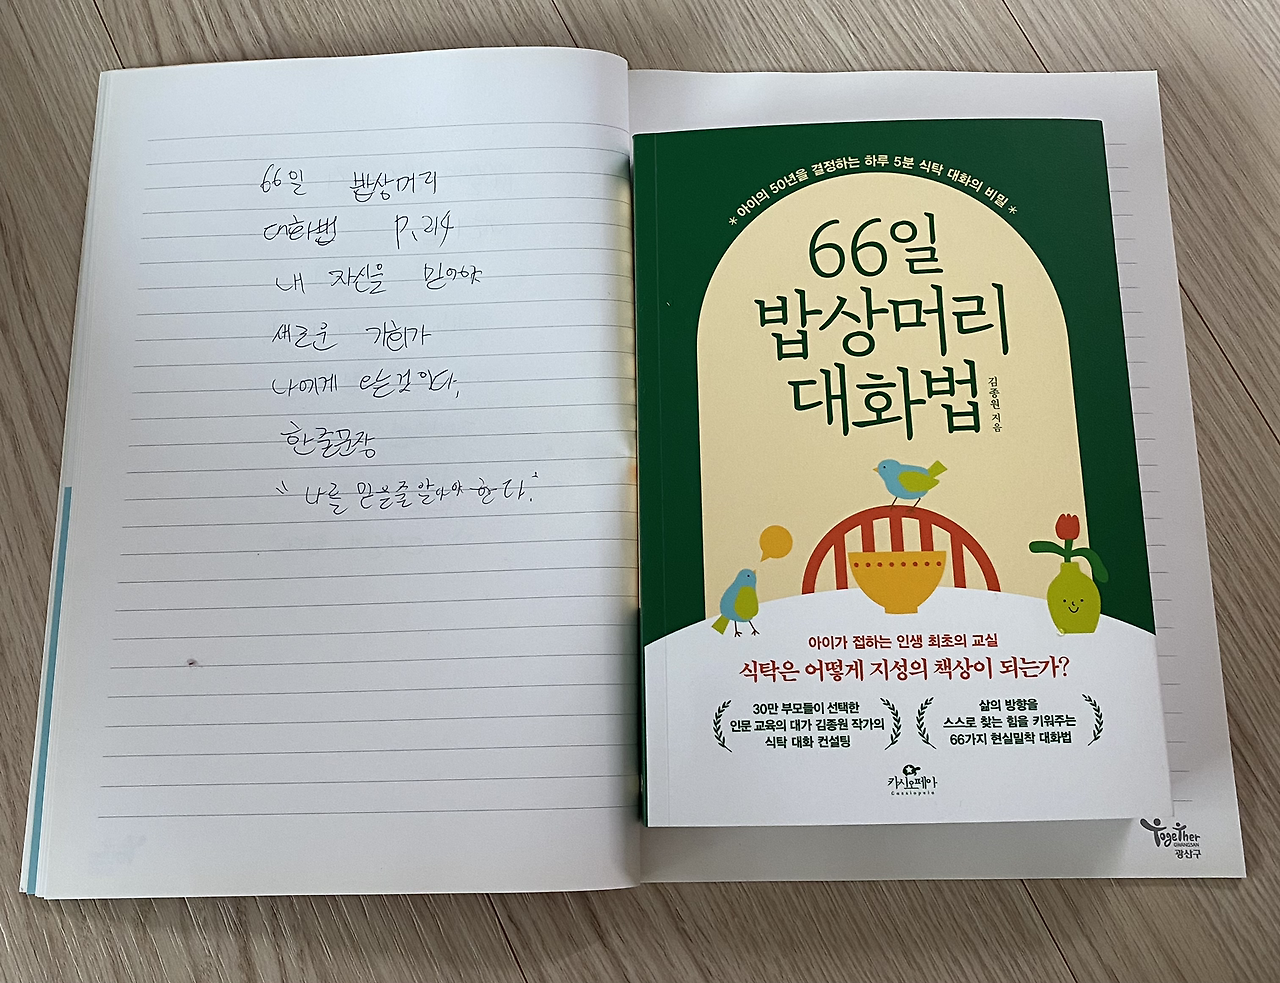 66일 밥상머리
대화법 P.214
내 자신을 믿어야
새로운 기회가
나에게 오는것이다.
한줄문장
"나를 믿을줄알아야 한다."
* 아이의 50년을 결정하는 하루 5분 식탁 대화의 비밀 *
66일
밥상머리
대화법
김종원 지음
아이가 접하는 인생 최초의 교실
식탁은 어떻게 지성의 책상이 되는가?
30만 부모들이 선택한
인문 교육의 대가 김종원 작가의
식탁 대화 컨설팅
삶의 방향을
스스로 찾는 힘을 키워주는
66가지 현실밀착 대화법
카시오페아
Cassiopeia
Together
GWANGSAN
광산구